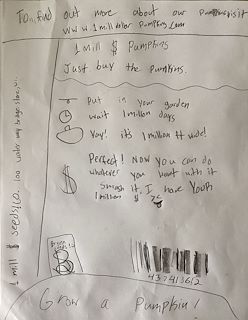 To find out more about our pumpkins visit
www.1milldollarpumpkins.com
1 mill $ Pumpkins
Just buy the pumpkins.
Put in your garden
wait 1 million days
Yay! it's 1 million ft wide!
Perfect! Now you can do
whatever you want with it
smash it, I have
1 million $
437413612
Grow a Pumpkin!
1 mill $ seeds co. 100